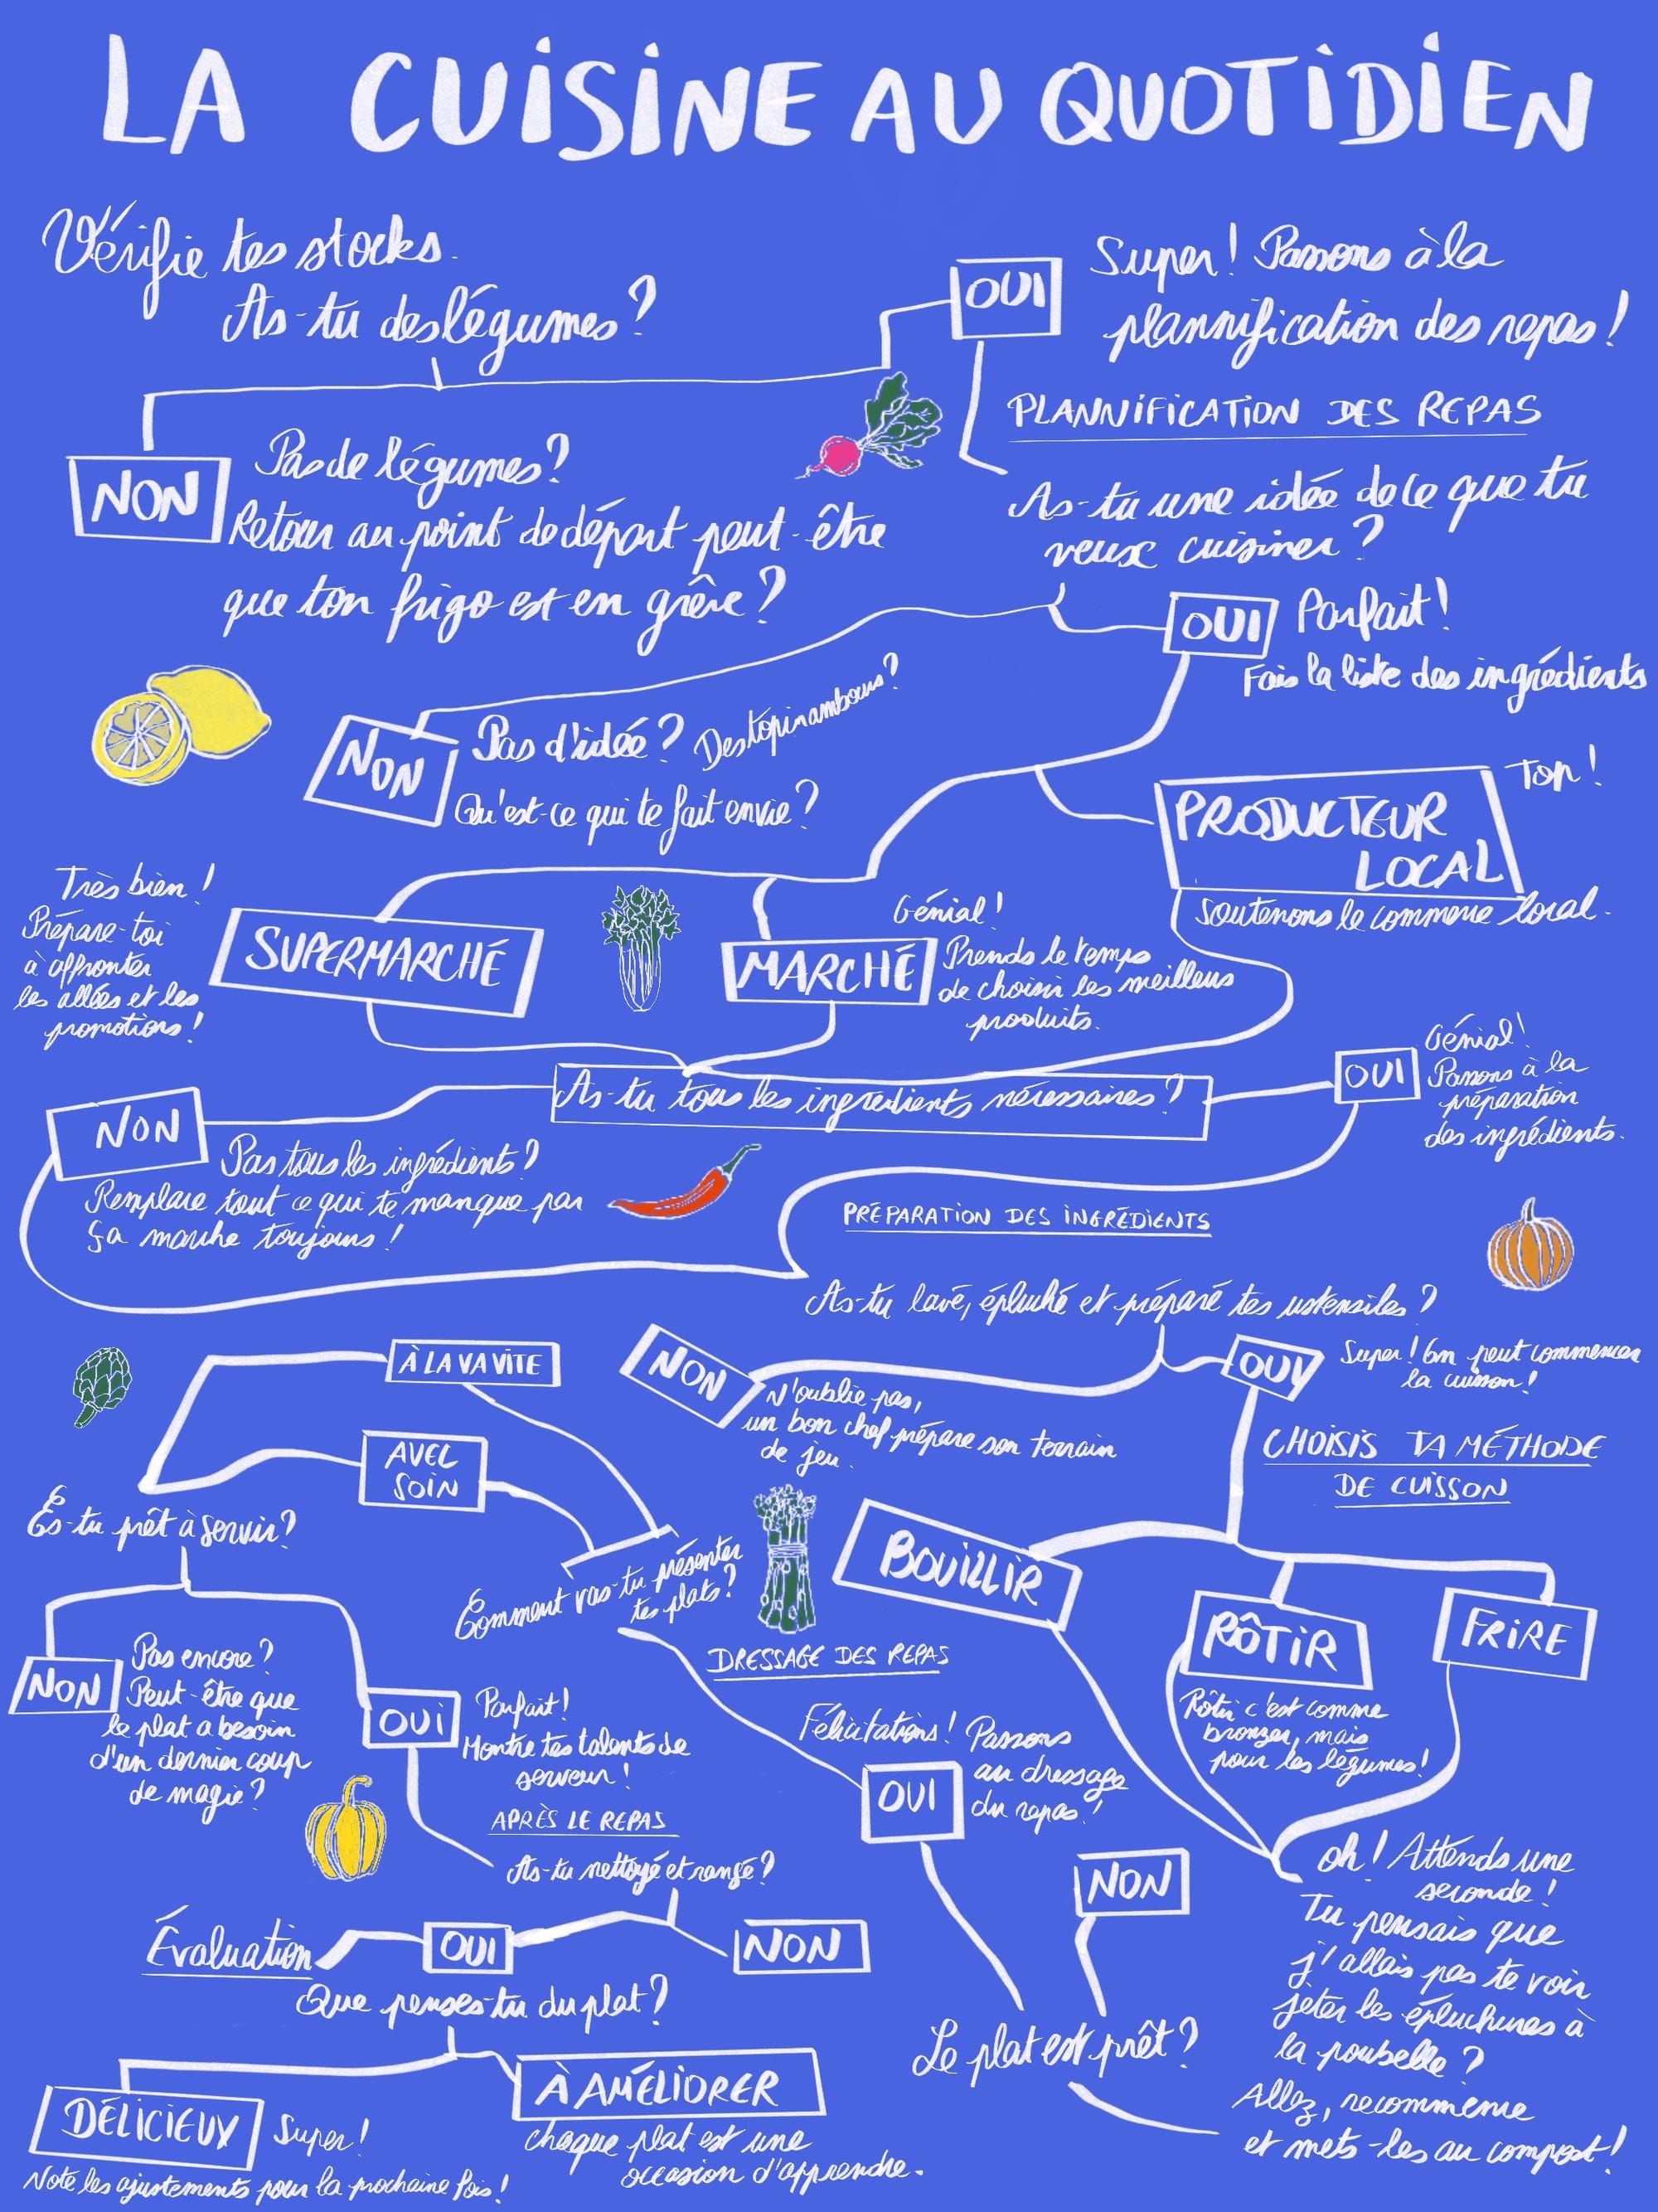 LA CUISINE AU QUOTIDIEN
Vérifie tes stocks.
As-tu des légumes?
OUI
Super! Passons à la
plannification des repas!
PLANNIFICATION DES REPAS
NON
Pas de légumes?
Retour au point de départ peut-être
que ton frigo est en grêve?
As-tu une idée de ce que tu
veux cuisiner?
OUI
Parfait!
Fais la liste des ingrédients
NON
Pas d'idée? Des topinambours?
Qu'est-ce qui te fait envie?
PRODUCTEUR
LOCAL
Top!
Soutenons le commerce local.
Très bien!
Prépare-toi
à affronter
les allées et les
promotions!
SUPERMARCHÉ
MARCHÉ
Génial!
Prends le temps
de choisir les meilleurs
produits.
As-tu tous les ingrédients nécessaires?
OUI
Génial!
Passons à la
préparation
des ingrédients.
NON
Pas tous les ingrédients?
Remplace tout ce qui te manque par
Ça marche toujours!
PRÉPARATION DES INGRÉDIENTS
As-tu lavé, épluché et préparé tes ustensiles?
NON
N'oublie pas,
un bon chef prépare son terrain
de jeu.
OUI
Super! On peut commencer
la cuisson!
CHOISIS TA MÉTHODE
DE CUISSON
À LA VA VITE
AVEC
SOIN
Es-tu prêt à servir?
Comment vas-tu présenter
tes plats?
BOUILLIR
RÔTIR
FRIRE
Rôtir c'est comme
bronzer, mais
pour les légumes!
DRESSAGE DES REPAS
NON
Pas encore?
Peut-être que
le plat a besoin
d'un dernier coup
de magie?
OUI
Parfait!
Montre tes talents de
serveur!
Félicitations! Passons
au dressage
du repas!
OUI
NON
APRÈS LE REPAS
As-tu nettoyé et rangé?
Évaluation
OUI
NON
Que penses-tu du plat?
Le plat est prêt?
oh! Attends une
seconde!
Tu pensais que
j'allais pas te voir
jeter les épluchures à
la poubelle?
Allez, recommence
et mets-les au compost!
DÉLICIEUX
Super!
Note les ajustements pour la prochaine fois!
À AMÉLIORER
chaque plat est une
occasion d'apprendre.